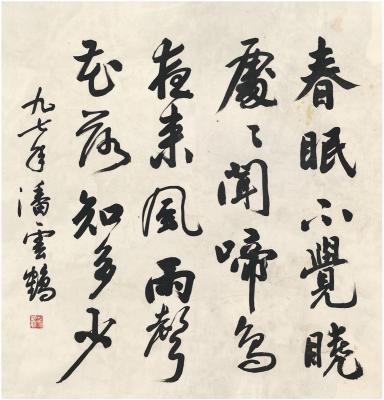 春眠不覺曉
處〻聞啼鳥
夜来風雨聲
花落知多少
九七年潘雲鶴